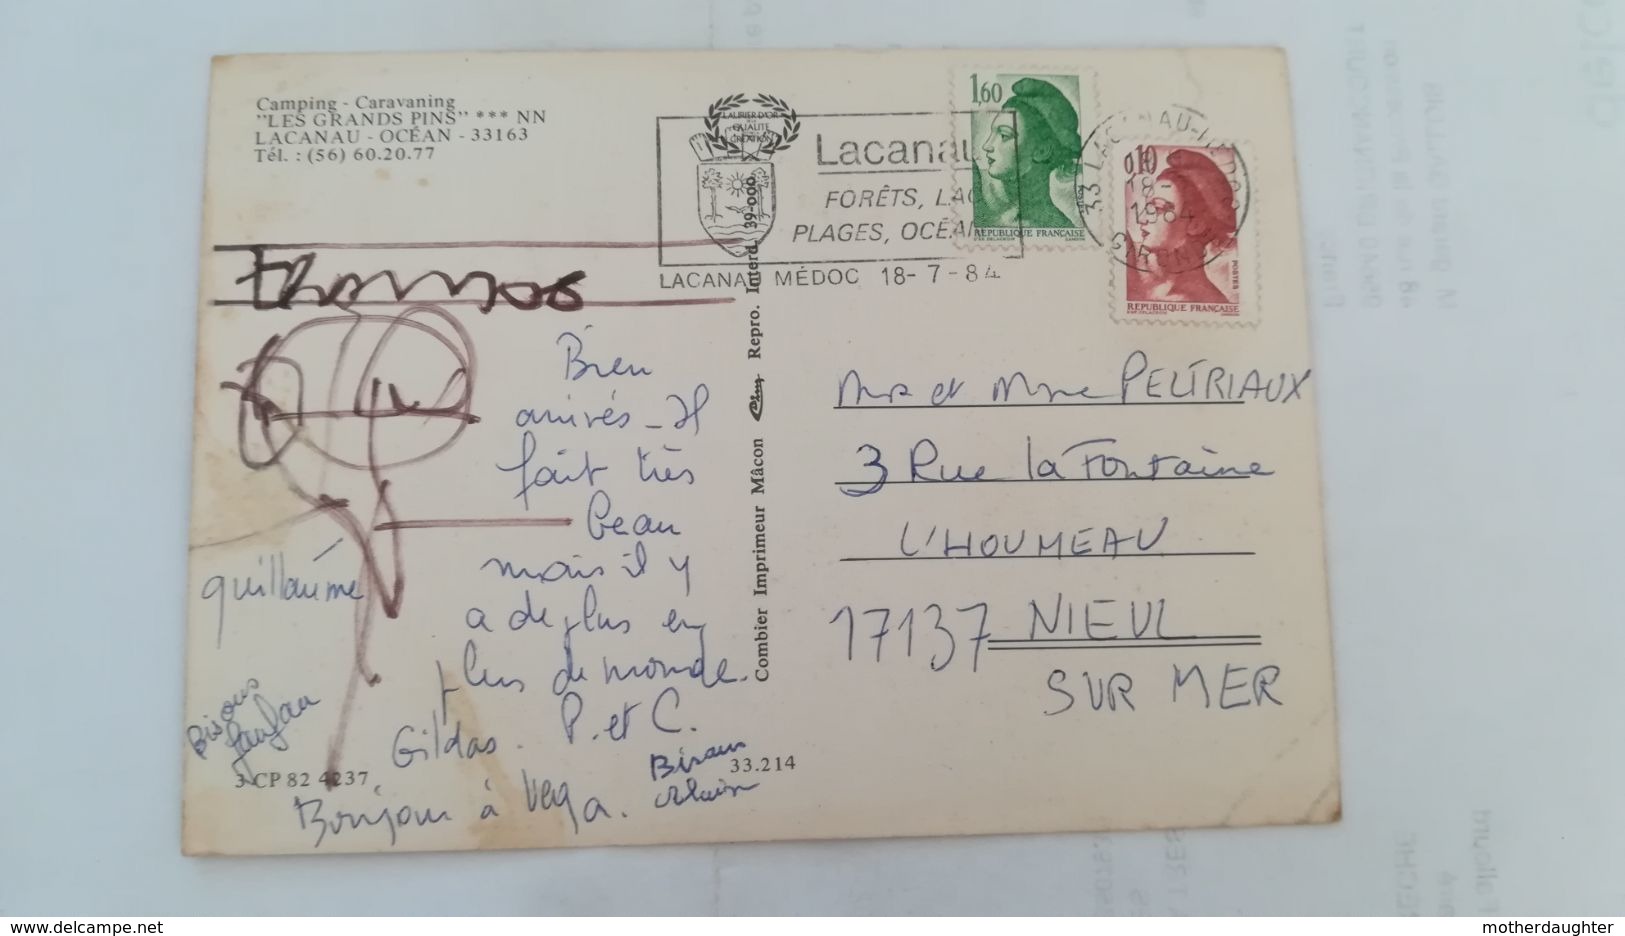 Camping - Caravaning
"LES GRANDS PINS" *** NN
LACANAU - OCÉAN - 33163
Tél. : (56) 60.20.77
LAURIER D'OR
QUALITÉ
CREATION
Lacanau
FORÊTS, LAC
PLAGES, OCÉAN
LACANAU MÉDOC 18-7-84
1,60
RÉPUBLIQUE FRANÇAISE
D'EP. DELACROIX GANDON
0,10
POSTES
RÉPUBLIQUE FRANÇAISE
D'EP. DELACROIX GANDON
33 LACANAU-MEDOC
18-
1984
GIRONDE
Bien
arrivés - Il
fait très
beau
mais il y
a de plus en
plus de monde.
P. et C.
guillaume
Gildas.
Bisous
Bonjour à Vega.
Bisous
Alain
3 CP 82 4237
33.214
Combier Imprimeur Mâcon Repro. Interd. 39-000
Mr et Mme PELTRIAUX
3 Rue la Fontaine
L'HOUMEAU
17137 NIEUL
SUR MER
motherdaughter